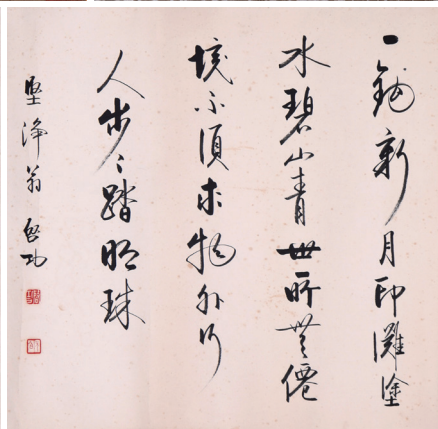 一鉤新月印灘塗
水碧山青世所無僊
境不須求物外行
人步〻踏明珠
堅淨翁 啓功